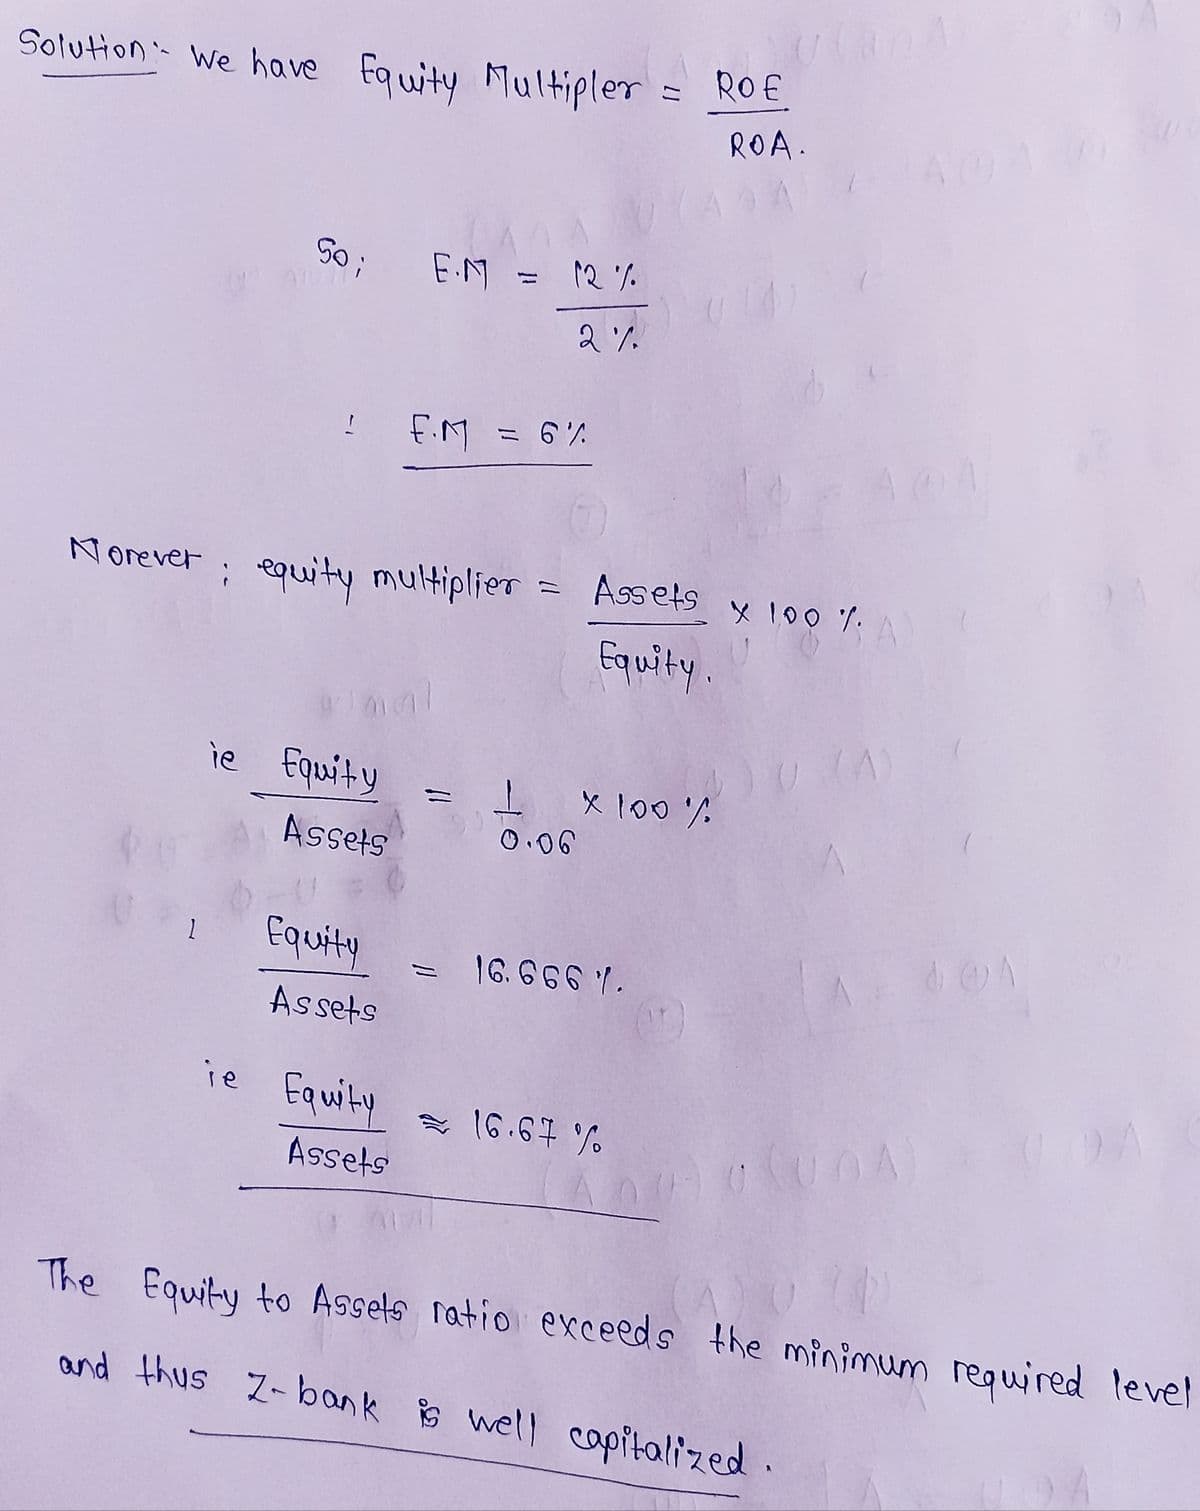 Solution:- We have Equity Multipler = ROE
ROA.
So; E.M = 12 %
2 %
E.M = 6%
Morever ; equity multiplier = Assets x 100 %
Equity.
ie Equity = 1 x 100 %
Assets 0.06
Equity = 16.666 %.
Assets
ie Equity ≈ 16.67 %
Assets
The Equity to Assets ratio exceeds the minimum required level
and thus Z-bank is well capitalized.